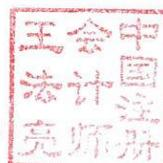 中国注册
会计师
王法亮